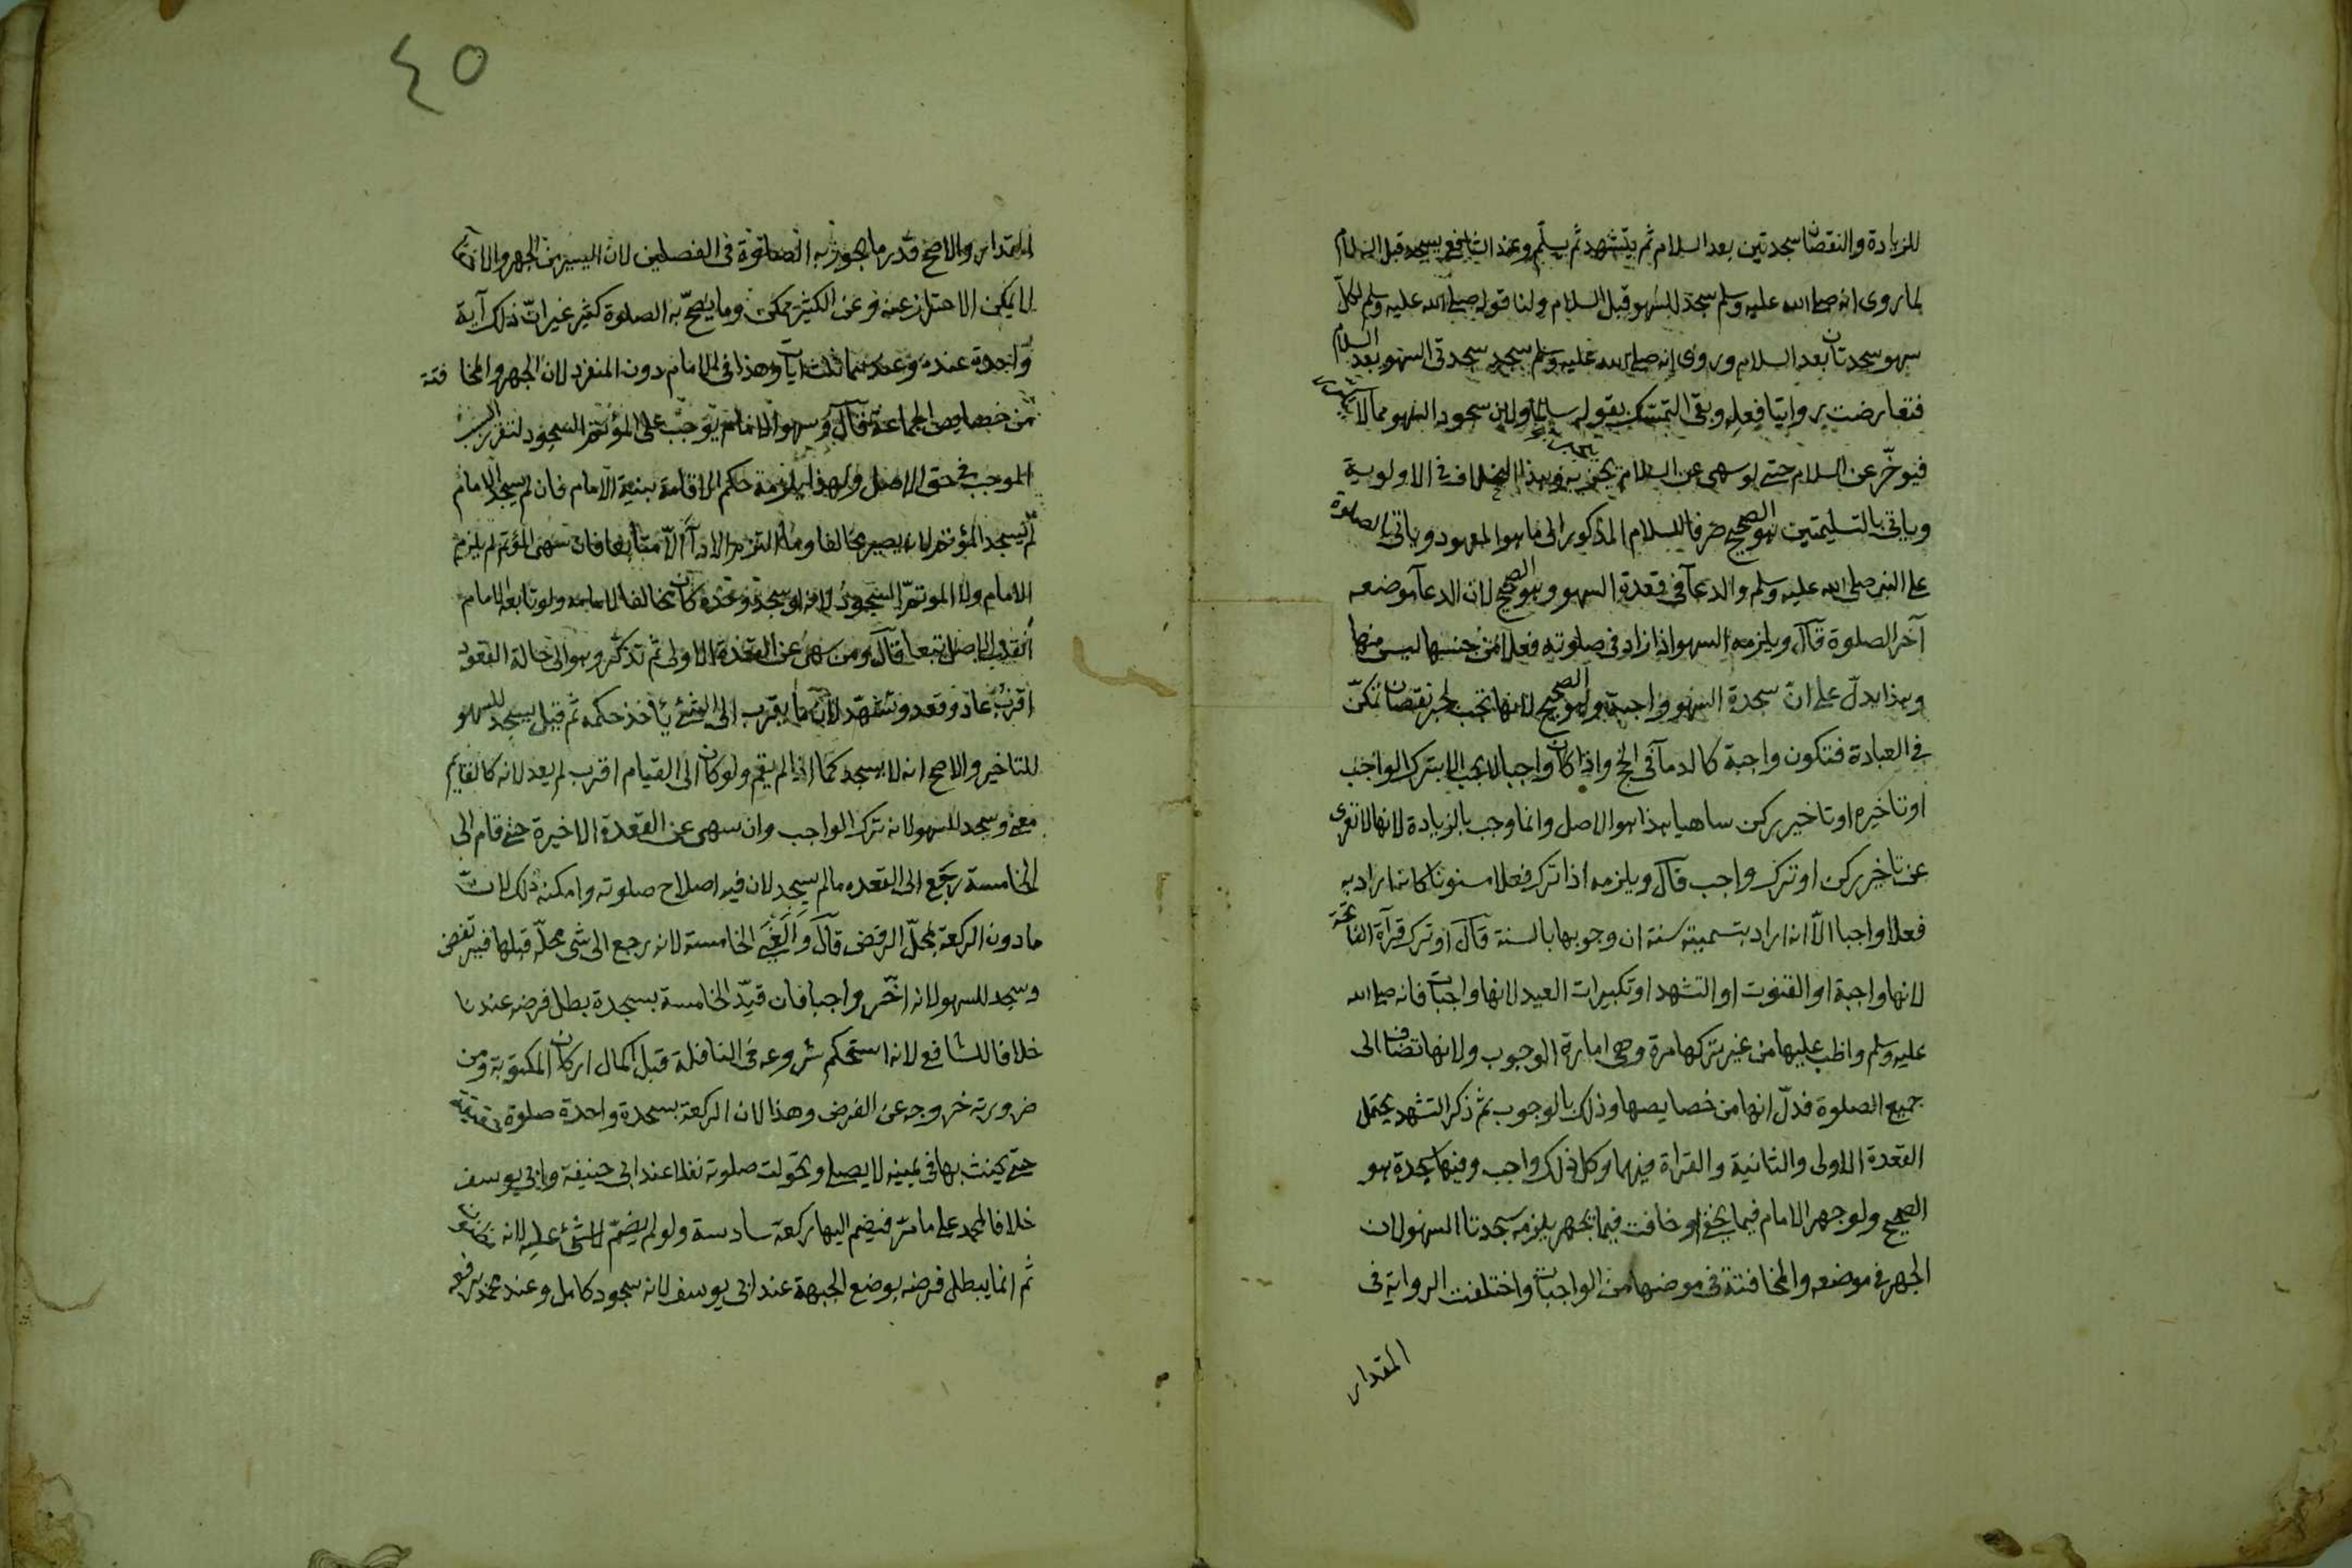 للزيادة والنقصان سجدتين بعد السلام ثم يتشهد ثم يسلم وعند الشافعي يسجد قبل السلام
لما روى انه صلى الله عليه وسلم سجد للسهو قبل السلام ولنا قوله صلى الله عليه وسلم لكل
سهو سجدتان بعد السلام وروى انه صلى الله عليه وسلم سجد سجدتى السهو بعد السلام
فتعارضت روايتا فعله وبقى التمسك بقوله سالما ولان سجود السهو مما لا يتكرر
فيؤخر عن السلام حتى لو سهى عن السلام ينجبر به وهذا الخلاف فى الاولوية
وياتى بالتسليمتين هو الصحيح صرفا للسلام المذكور الى ما هو المعهود وياتى بالصلوة
على النبى صلى الله عليه وسلم والدعآ فى قعدة السهو وهو الصحيح لان الدعآ موضعه
آخر الصلوة قال ويلزمه السهو اذا زاد فى صلوته فعلا من جنسها ليس منها
وهذا يدل على ان سجدة السهو واجبة وهو الصحيح لانها تجب لجبر نقصان تمكن
فى العبادة فتكون واجبة كالدمآ فى الحج واذا كان واجبا لا يجب الا بترك الواجب
او تاخيره او تاخير ركن ساهيا هذا هو الاصل وانما وجب بالزيادة لانها لا تعرى
عن تاخير ركن او ترك واجب قال ويلزمه اذا ترك فعلا مسنونا كانه اراد به
فعلا واجبا الا انه اراد بتسميته سنة ان وجوبها بالسنة قال او ترك قرآة الفاتحة
لانها واجبة او القنوت او التشهد او تكبيرات العيد لانها واجبات فانه صلى الله
عليه وسلم واظب عليها من غير تركها مرة وهى امارة الوجوب ولانها تضاف الى
جميع الصلوة فدل انها من خصايصها وذلك بالوجوب ثم ذكر التشهد يحتمل
القعدة الاولى والثانية والقراة فيهما وكل ذلك واجب وفيها سجدة هو
الصحيح ولو جهر الامام فيما يخفى او خافت فيما يجهر يلزمه سجدتا السهو لان
الجهر فى موضعه والمخافتة فى موضعها من الواجبات واختلفت الرواية فى
المقدار
٤٥
المقدار والاصح قدر ما يجوز به الصلوة فى الفصلين لان اليسير من الجهر والاخفآ
لا يمكن الاحتراز عنه وعن الكثير ممكن وما يصح به الصلوة كثير غير ان ذلك آية
واحدة عنده وعندهما ثلث آيات وهذا فى الامام دون المنفرد لان الجهر والمخافتة
من خصايص الجماعة قال وسهو الامام يوجب على المؤتم السجود لتقرر السبب
الموجب فى حق الاصل ولهذا يلزمه حكم الاقامة بنية الامام فان لم يسجد الامام
لم يسجد المؤتم لانه يصير مخالفا وما التزم الادآ الا متابعا فان سهى المؤتم لم يلزم
الامام ولا المؤتم السجود لانه لو سجد وحده كان مخالفا لامامه ولو تابعه الامام
انقلب الاصل تبعا قال ومن سهى عن القعدة الاولى ثم تذكر وهو الى حالة القعود
اقرب عاد وقعد وتشهد لان ما يقرب الى الشئ ياخذ حكمه ثم قيل يسجد للسهو
للتاخير والاصح انه لا يسجد كما اذا لم يقم ولو كان الى القيام اقرب لم يعد لانه كالقايم
معنى وسجد للسهو لانه ترك الواجب وان سهى عن القعدة الاخيرة حتى قام الى
الخامسة رجع الى القعده ما لم يسجد لان فيه اصلاح صلوته وامكنه ذلك لان
ما دون الركعة بمحل الرفض قال والغى الخامسة لانه رجع الى شى محله قبلها فيرتفض
وسجد للسهو لانه اخر واجبا فان قيد الخامسة بسجدة بطل فرضه عندنا
خلافا للشافعى لانه استحكم شروعه فى النافلة قبل اكمال اركان المكتوبة ومن
ضرورته خروجه عن الفرض وهذا لان الركعة بسجدة واحدة صلوة حقيقة
حتى يحنث بها فى يمينه لا يصلى وتحولت صلوته نفلا عند ابى حنيفة وابى يوسف
خلافا لمحمد على ما مر فيضم اليها ركعة سادسة ولو لم يضم لا شئ عليه لانه مظنون
ثم انما يبطل فرضه بوضع الجبهة عند ابى يوسف لانه سجود كامل وعند محمد برفعه